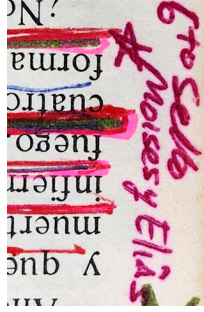 6to Sello
* Moises y Elías
y que
muert
infiern
fuego
cuatro
forma
¿No